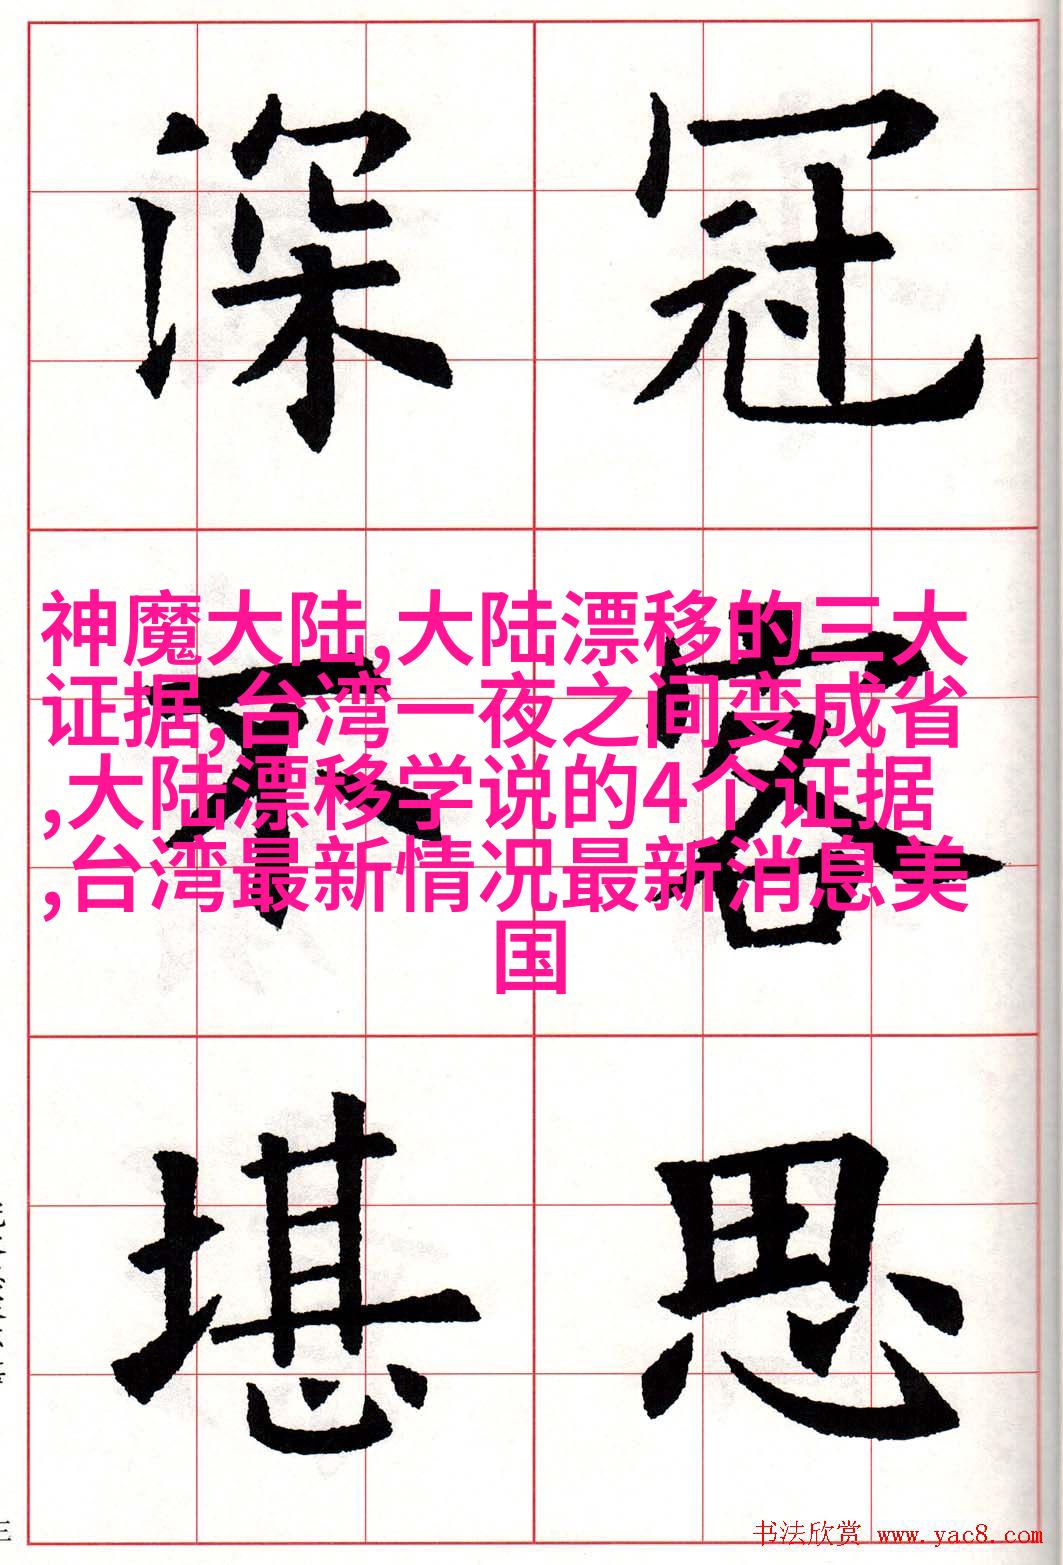 深冠
神魔大陆,大陆漂移的三大
证据,台湾一夜之间变成省
,大陆漂移学说的4个证据
,台湾最新情况最新消息美
国
不容
堪思
书法欣赏 www.yac8.com
三